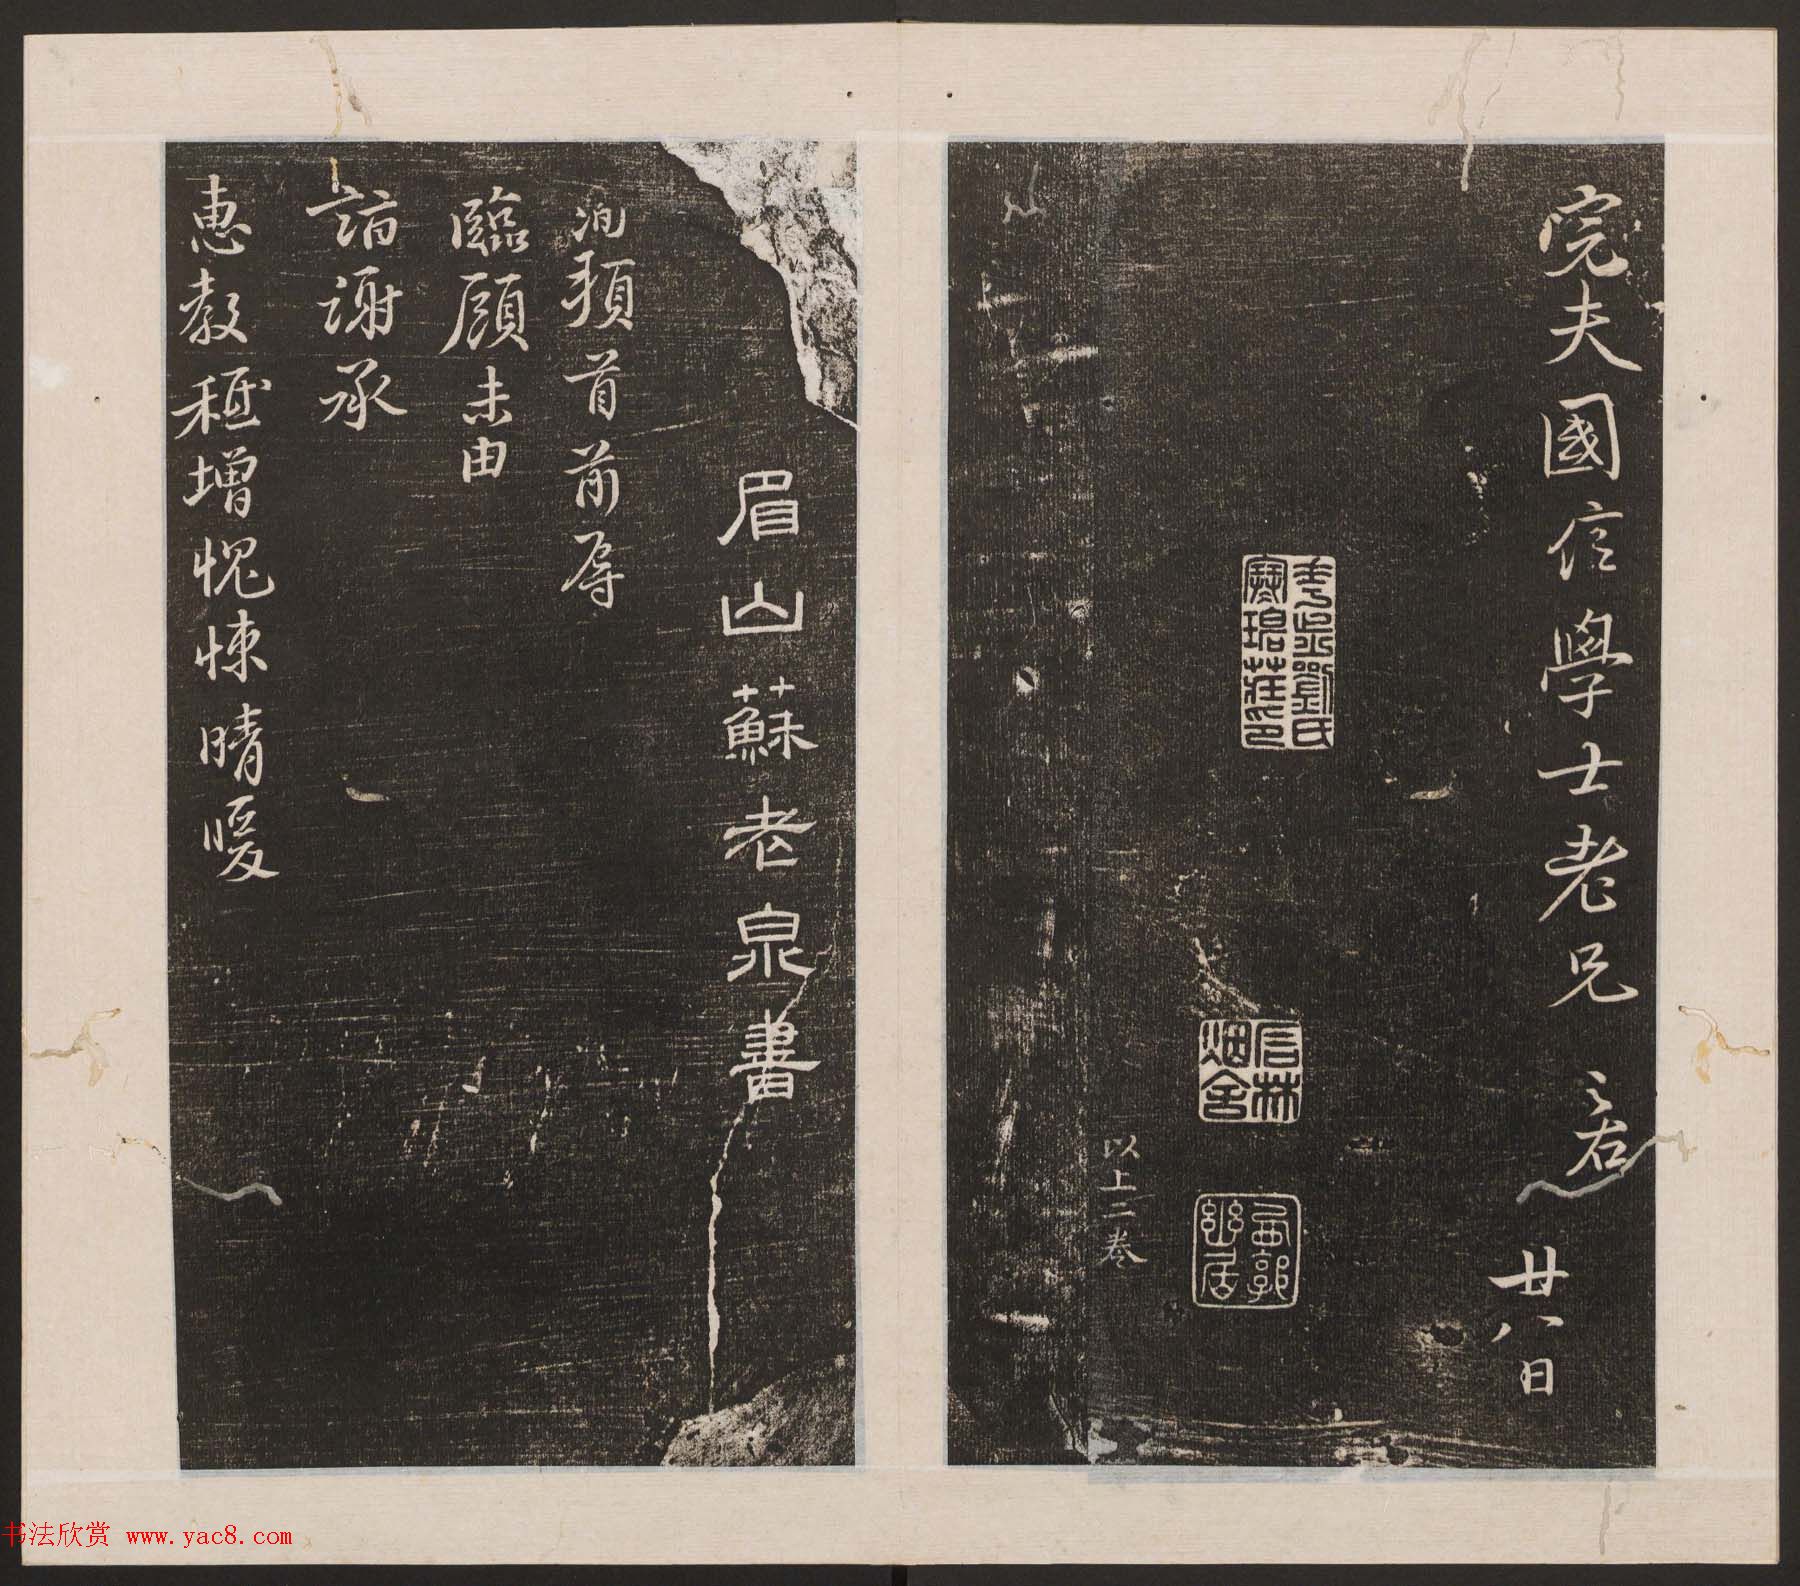 完夫國信學士老兄
廿八日
劉氏
寒碧莊印
幽居
以上二卷
眉山蘇老泉書
洵頓首前辱
臨顧未由
詣謝承
惠教秪增愧悚晴暖
书法欣赏 www.yac8.com